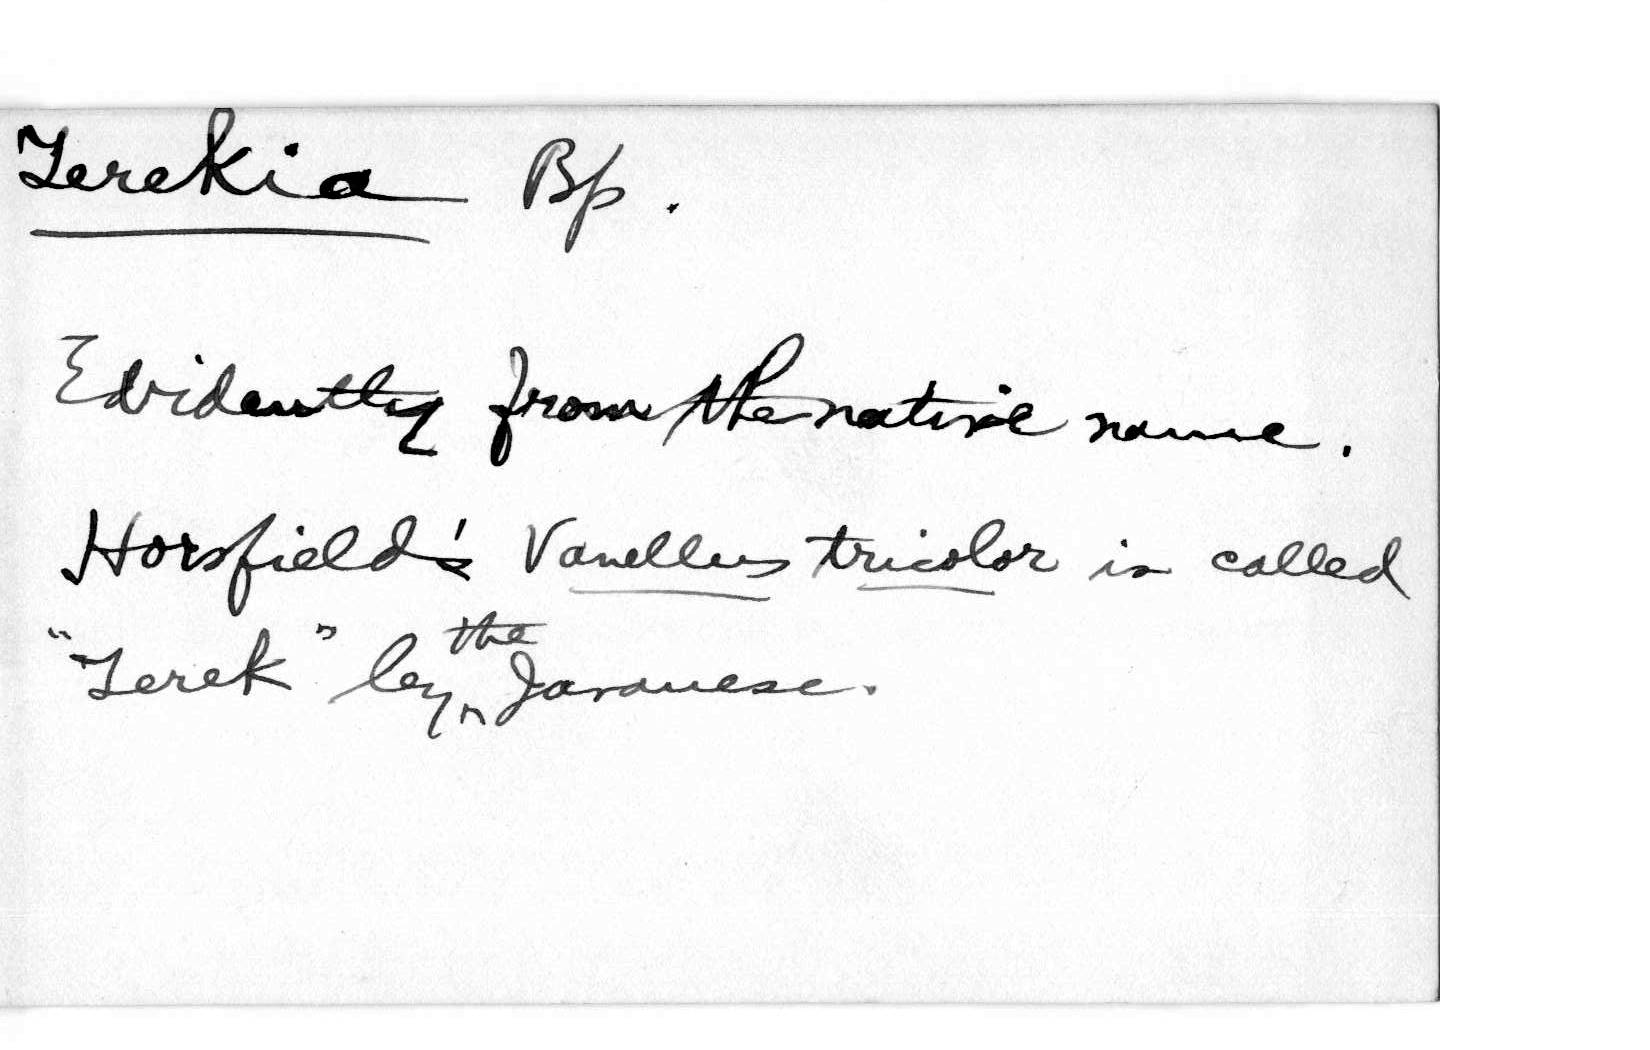 Terekia Bp.
Evidently from the native name.
Horsfield's Vanellus tricolor is called
"Terek" by the Javanese.